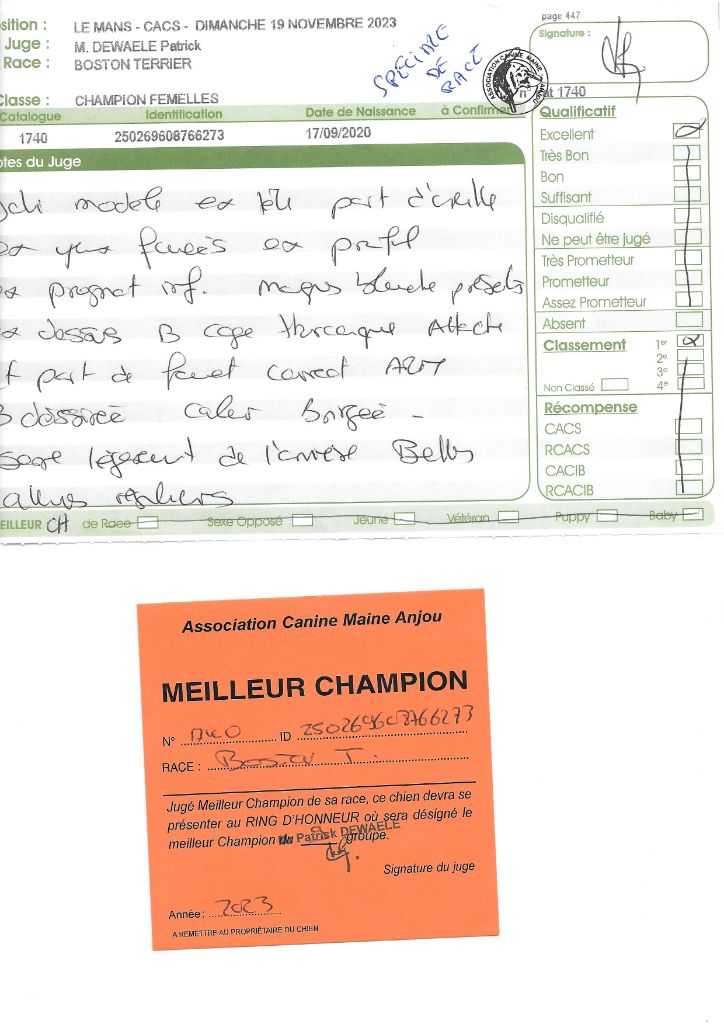 osition : LE MANS - CACS - DIMANCHE 19 NOVEMBRE 2023
Juge : M. DEWAELE Patrick
Race : BOSTON TERRIER
SPÉCIALE DE RACE
page 447
Signature :
ASSOCIATION CANINE MAINE ANJOU
n° at 1740
Classe : CHAMPION FEMELLES
Catalogue Identification Date de Naissance à Confirmer
1740 250269608766273 17/09/2020
otes du Juge
modele ex tête port d'oreille
ex yeux foncés ex profil
ex prognat inf. blanche
ex dessus B cage thoracique Attache
port de fouet correct
Belles
Qualificatif
Excellent
Très Bon
Bon
Suffisant
Disqualifié
Ne peut être jugé
Très Prometteur
Prometteur
Assez Prometteur
Absent
Classement 1er
2e
3e
Non Classé 4e
Récompense
CACS
RCACS
CACIB
RCACIB
EILLEUR CH de Race Sexe Opposé Jeune Vétéran Puppy Baby
Association Canine Maine Anjou
MEILLEUR CHAMPION
N° 1740 ID 250269608766273
RACE : Boston T.
Jugé Meilleur Champion de sa race, ce chien devra se
présenter au RING D'HONNEUR où sera désigné le
meilleur Champion du groupe.
Patrick DEWAELE
Signature du juge
Année : 2023
A REMETTRE AU PROPRIÉTAIRE DU CHIEN